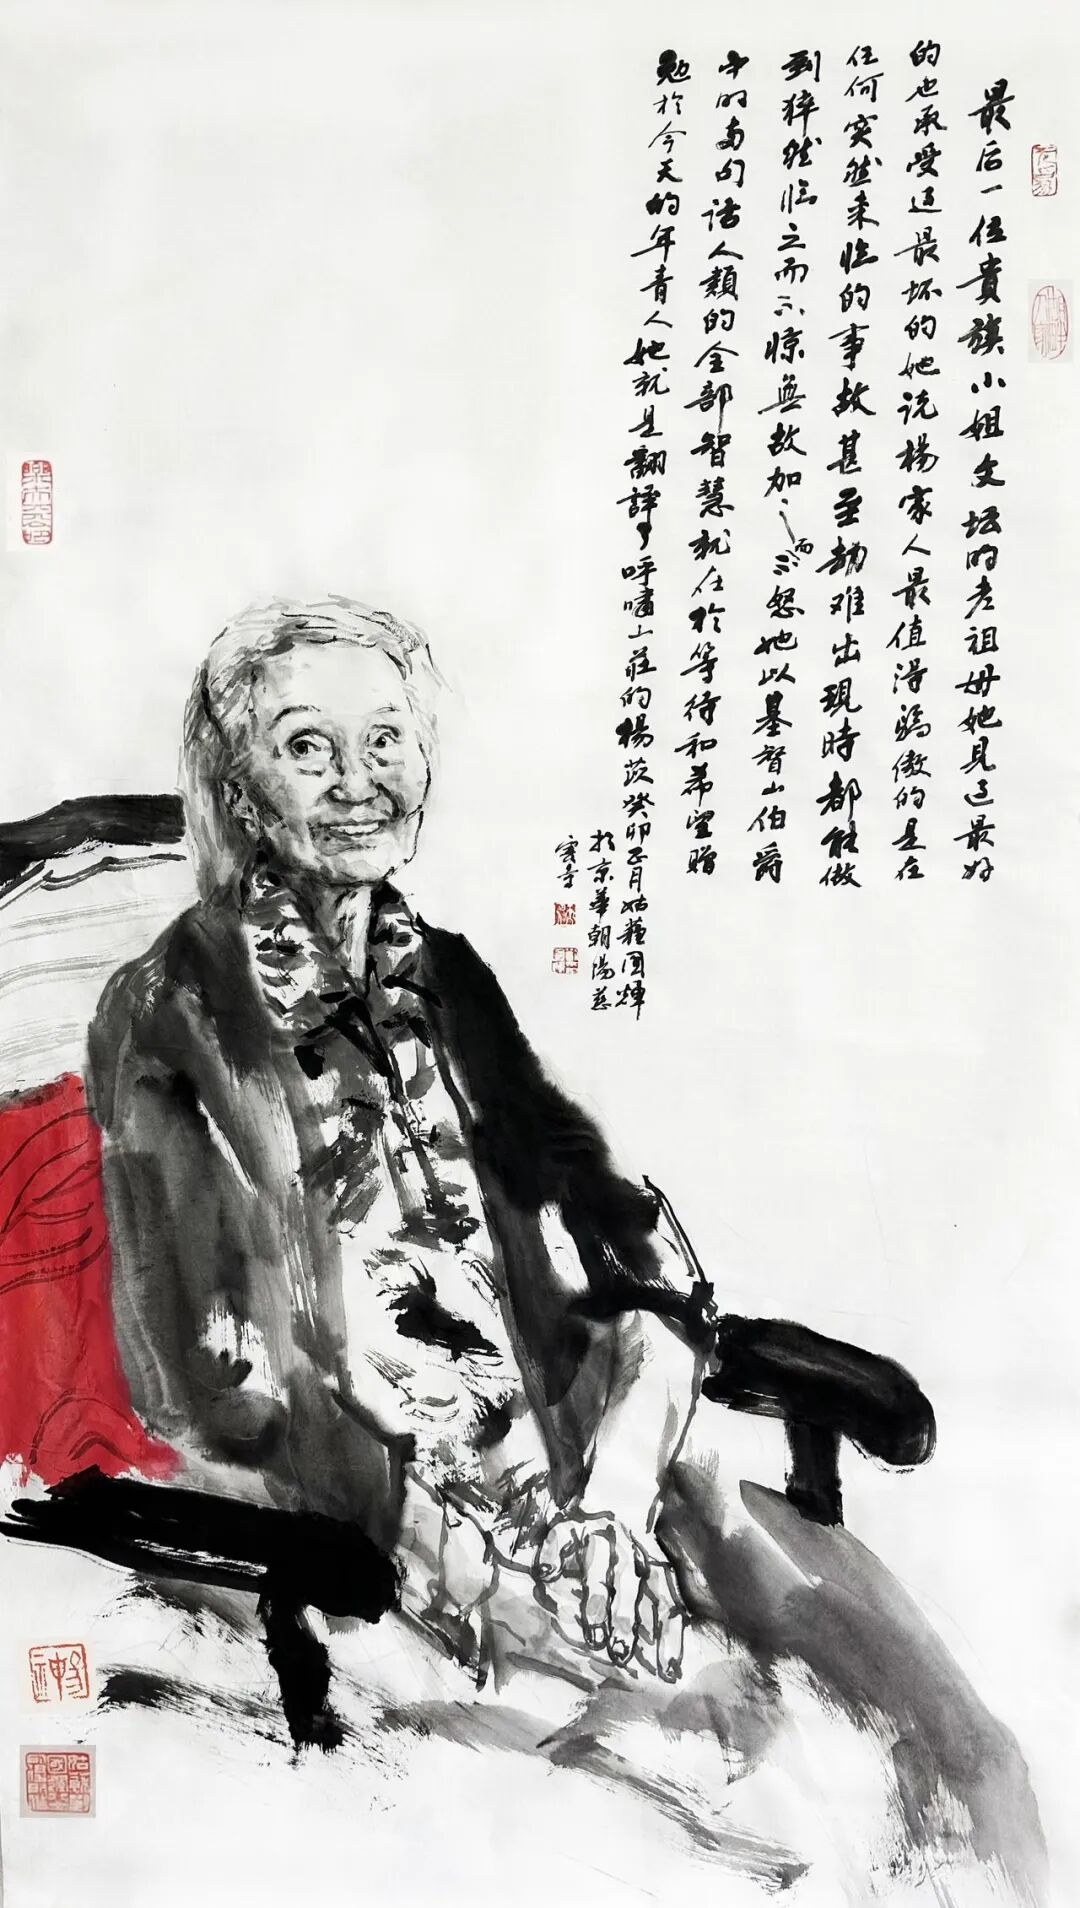 最后一位貴族小姐文坛的老祖母她見过最好
的也承受过最坏的她说楊家人最值得骄傲的是在
任何突然来临的事故甚至劫难出現時都能做
到猝然临之而不惊無故加之而不怒她以基督山伯爵
中的两句话人類的全部智慧就在於等待和希望赠
勉於今天的年青人她就是翻譯了呼嘯山莊的楊苡癸卯正月姑蘓国輝
於京華朝陽慈
雲寺